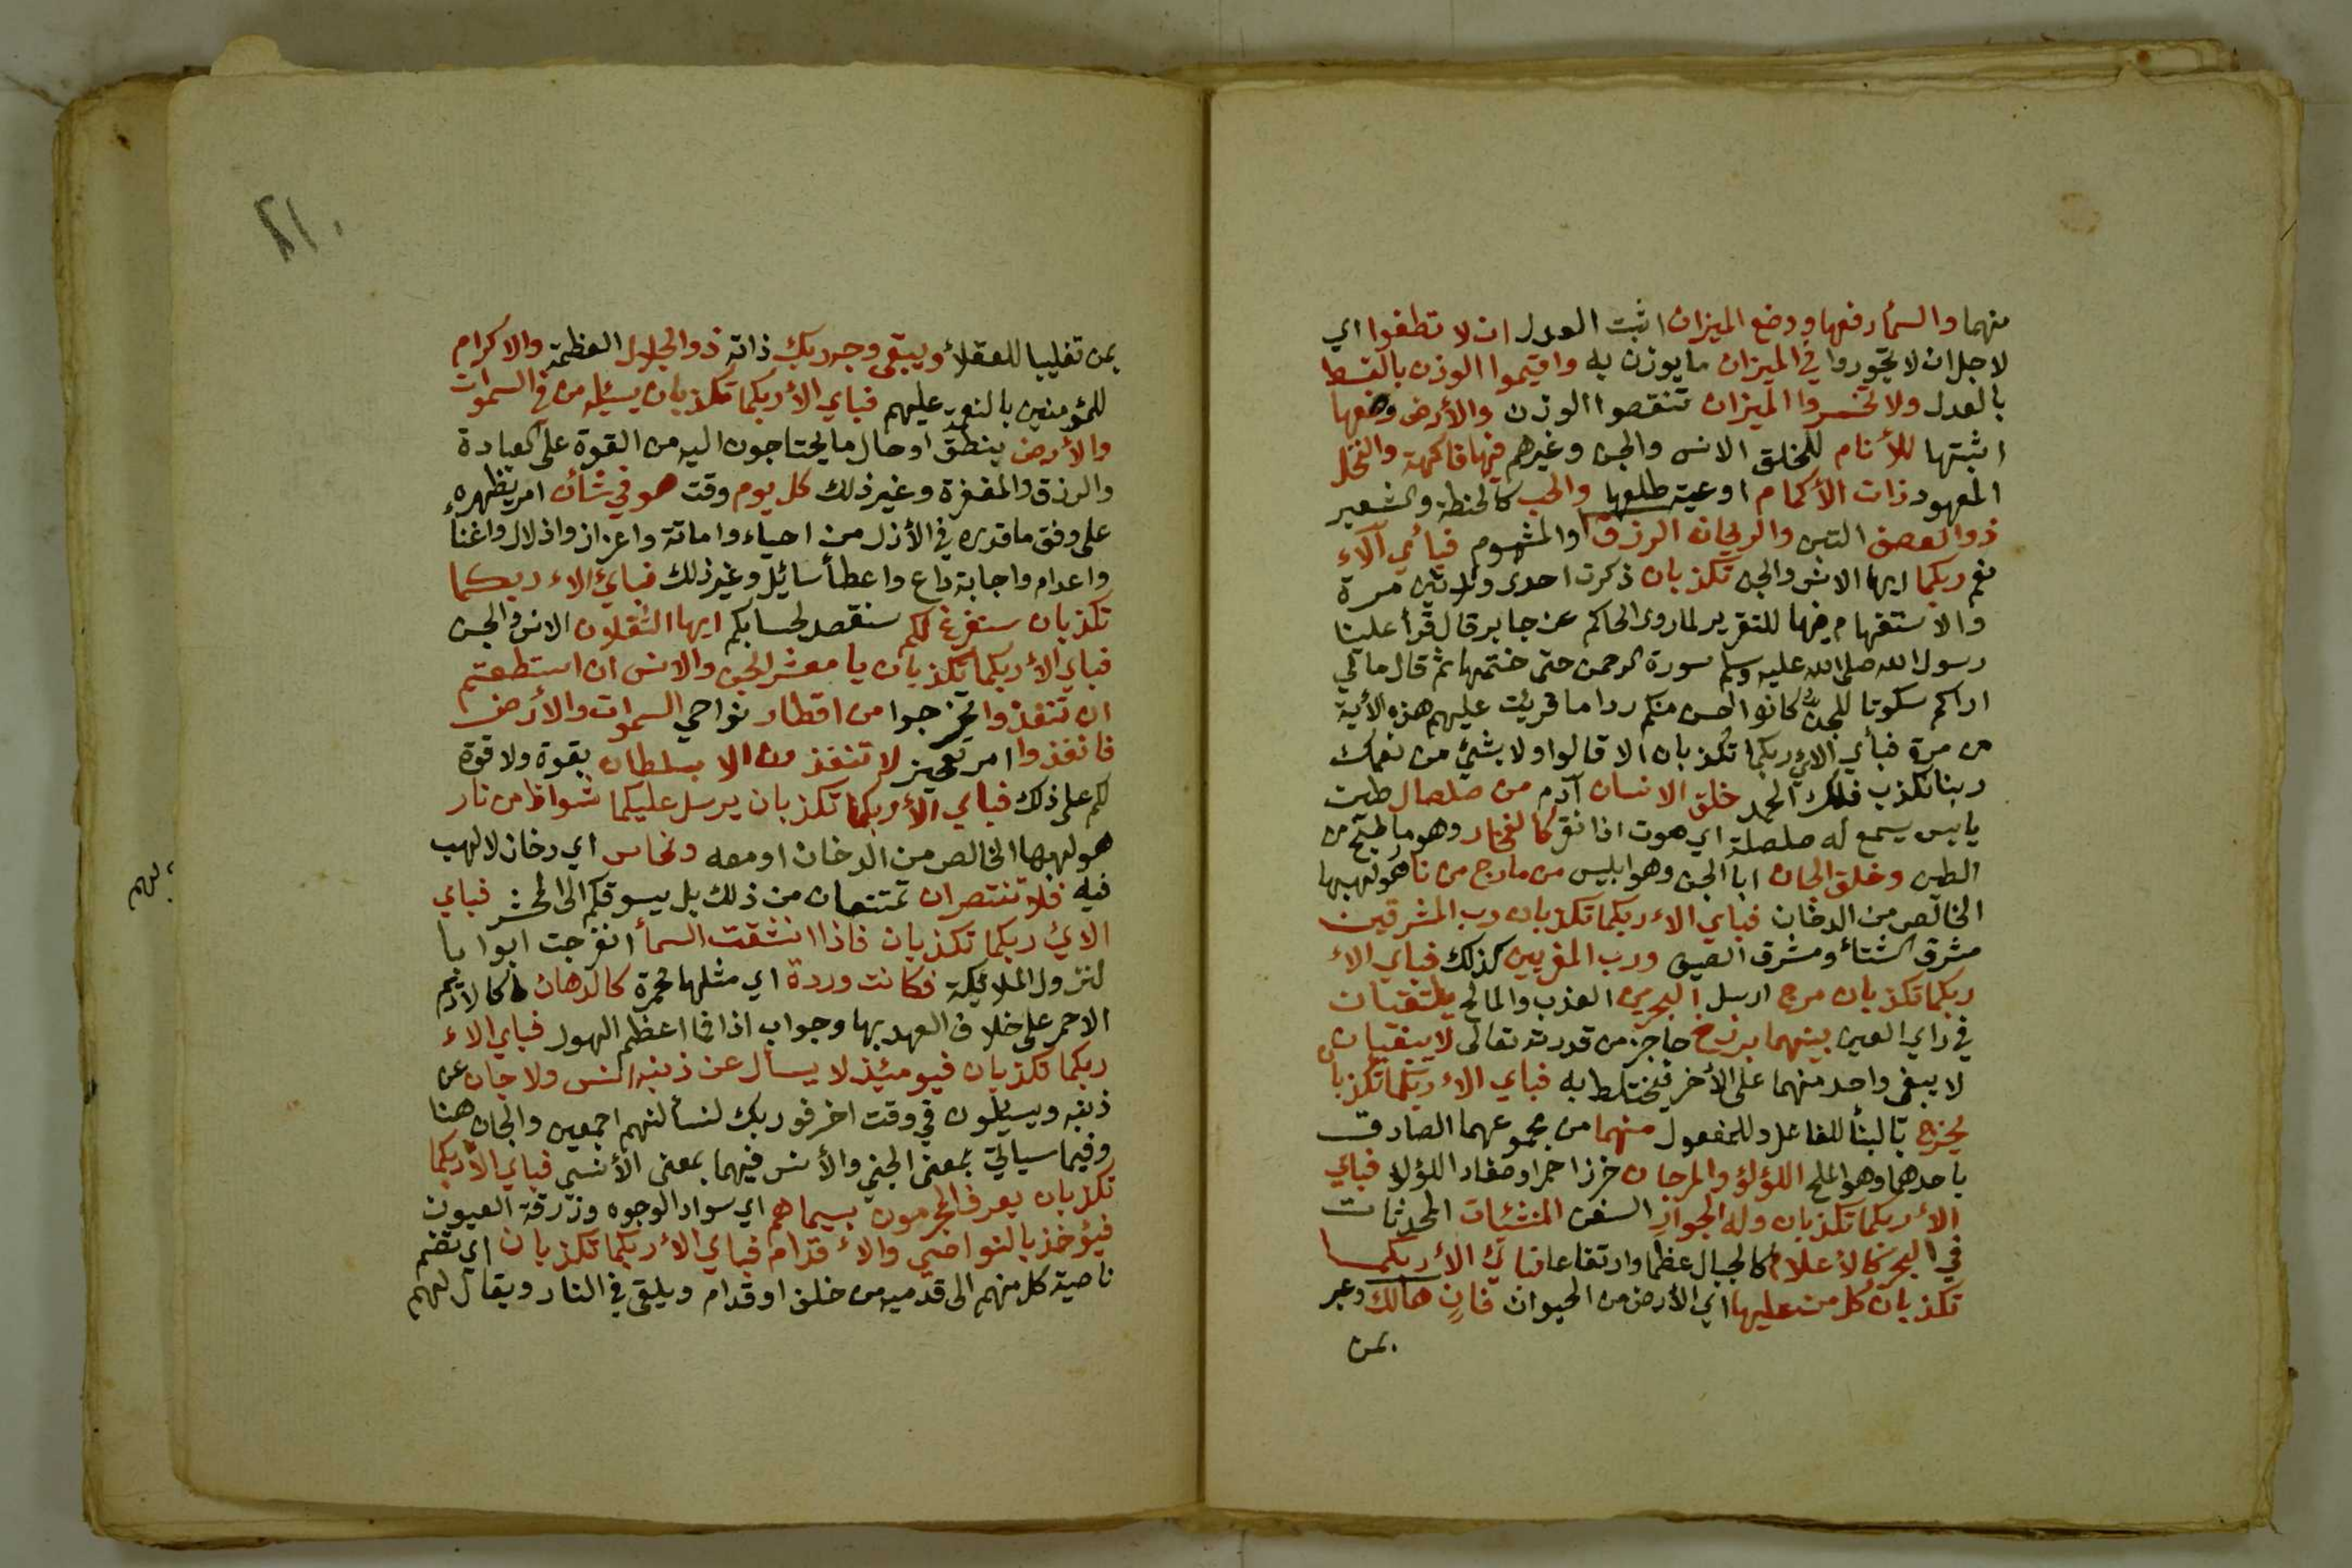 منهما والسمأ رفعها ووضع الميزان اثبت العدل ان لا تطغوا اي
لاجل ان لا تجوروا في الميزان ما يوزن به واقيموا الوزن بالقسط
بالعدل ولا تخسروا الميزان تنقصوا الوزن والأرض وضعها
اثبتها للأنام للخلق الانس والجن وغيرهم فيها فاكهة والنخل
المعهود ذات الأكمام اوعية طلعها والحب كالحنطة والشعير
ذو العصف التبن والريحان الرزق او المشموم فبأي آلاء
نعم ربكما ايها الانس والجن تكذبان ذكرت احدى وثلاثين مرة
والاستفهام فيها للتقرير لما روى الحاكم عن جابر قال قرأ علينا
رسول الله صلى الله عليه وسلم سورة الرحمن حتى ختمها ثم قال مالي
اراكم سكوتا للجن كانوا احسن منكم ردا ما قريت عليهم هذه الأية
من مرة فبأي الاء ربكما تكذبان الا قالوا ولا بشئ من نعمك
ربنا نكذب فلك الحمد خلق الانسان آدم من صلصال طين
يابس يسمع له صلصلة اي صوت اذا نقر كالفخار وهو ما طبخ من
الطين وخلق الجان ابا الجن وهو ابليس من مارج من نار هو لهبها
الخالص من الدخان فباي الاء ربكما تكذبان رب المشرقين
مشرق الشتأ ومشرق الصيف ورب المغربين كذلك فباي الاء
ربكما تكذبان مرج ارسل البحرين العذب والمالح يلتقيان
في راي العين بينهما برزخ حاجز من قدرته تعالى لا يبغيان
لا يبغي واحد منهما على الأخر فيختلط به فباي الاء ربكما تكذبان
يخرج بالبنأ للفاعل وللمفعول منهما من مجموعهما الصادق
باحدهما وهو الملح اللؤلؤ والمرجان خرز احمر او صغار اللؤلؤ فباي
الأء ربكما تكذبان وله الجوار السفن المنشئات المحدثات
في البحر كالأعلام كالجبال عظما وارتفاعا فباي الأء ربكما
تكذبان كل من عليها اي الأرض من الحيوان فان هالك وعبر
بمن
٢١٠
بمن تغليبا للعقلأ ويبقى وجه ربك ذاته ذو الجلال العظمة والاكرام
للمؤمنين بالنعمة عليهم فباي الأء ربكما تكذبان يسئله من في السموات
والأرض بنطق او حال ما يحتاجون اليه من القوة على العبادة
والرزق والمغفرة وغير ذلك كل يوم وقت هو في شأن امر يظهره
على وفق ما قدره في الأزل من احياء واماتة واعزاز واذلال واغنأ
واعدام واجابة داع واعطأ سائل وغير ذلك فباي الاء ربكما
تكذبان سنفرغ لكم سنقصد لحسابكم ايها الثقلان الانس والجن
فباي الأء ربكما تكذبان يا معشر الجن والانس ان استطعتم
ان تنفذوا تخرجوا من اقطار نواحي السموات والأرض
فانفذوا امر تعجيز لا تنفذون الا بسلطان بقوة ولا قوة
لكم على ذلك فباي الأء ربكما تكذبان يرسل عليكما شواظ من نار
هو لهبها الخالص من الدخان او معه ونحاس اي دخان لا لهب
فيه فلا تنتصران تمتنعان من ذلك بل يسوقكم الى المحشر فباي
الاء ربكما تكذبان فاذا انشقت السمأ انفرجت ابوابا
لنزول الملائكة فكانت وردة اي مثلها محمرة كالدهان كالأديم
الاحمر على خلاف العهد بها وجواب اذا فما اعظم الهول فباي الاء
ربكما تكذبان فيومئذ لا يسأل عن ذنبه انس ولا جان عن
ذنبه ويسئلون في وقت اخر فوربك لنسألنهم اجمعين والجان هنا
وفيما سيأتي بمعنى الجني والأنس فيهما بمعنى الأنسي فباي الأء ربكما
تكذبان يعرف المجرمون بسيماهم اي سواد الوجوه وزرقة العيون
فيؤخذ بالنواصي والأقدام فباي الأء ربكما تكذبان اي تضم
ناصية كل منهم الى قدميه من خلف او قدام ويلقى في النار ويقال لهم